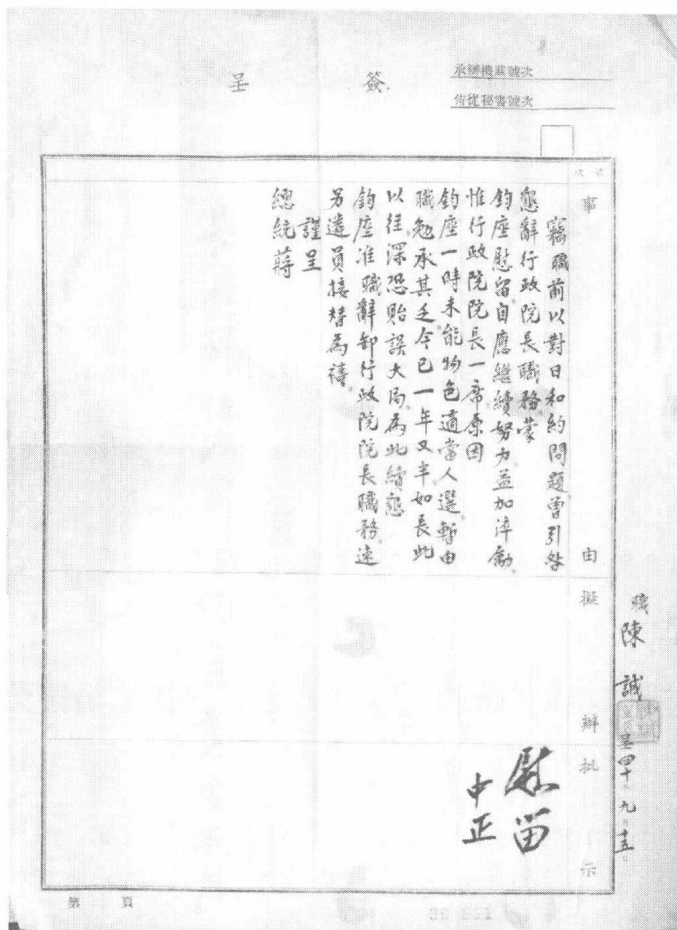 簽呈
承辦機關號次
侍從秘書號次
事由
竊職前以對日和約問題曾引咎
懇辭行政院長職務蒙
鈞座慰留自應繼續努力益加淬勵
惟行政院院長一席原因
鈞座一時未能物色適當人選暫由
職勉承其乏今已一年又半如長此
以往深恐貽誤大局為此續懇
鈞座准職辭卸行政院院長職務迅
另遴員接替為禱
謹呈
總統蔣
擬辦
批示
慰留
中正
職陳誠
呈四十年九月十五日
第頁